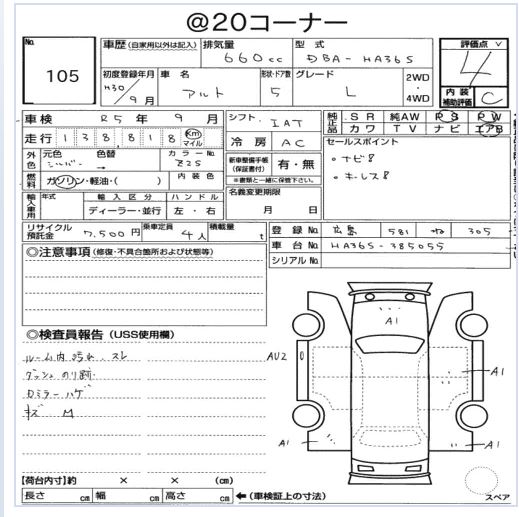 @20コーナー
No. 105
車歴(自家用以外は記入) 排気量 660cc 型式 DBA-HA36S
評価点 4
内装補助評価 C
初度登録年月 H30/9月 車名 アルト 形状・ドア数 5 グレード L 2WD・4WD
車検 R5年 9月 シフト IAT
純正品 SR 純AW PS PW
カワ TV ナビ エアB
走行 138818 Km マイル 冷房 AC
セールスポイント
・ナビ
・キーレス
外色 元色 シルバー 色替 → カラーNo. Z2S
新車整備手帳(保証書付) 有・無
※書類と一緒に保管下さい。
燃料 ガソリン・軽油・( ) 内装色
名義変更期限
月 日
輸入車用 年式 輸入区分 ハンドル
ディーラー・並行 左・右
リサイクル預託金 7,500円 乗車定員 4人 積載量 t
登録No 広島 581 ね 305
車台No HA36S-385055
シリアルNo
◎注意事項(修復・不具合箇所および状態等)
◎検査員報告(USS使用欄)
ルーム内 汚れ、スレ
ダッシュ のり跡
ロミラー ハゲ
キズ M
A1
AU2
A1
A1
A1
【荷台内寸】約 × × (cm)
長さ cm 幅 cm 高さ cm ←(車検証上の寸法)
スペア